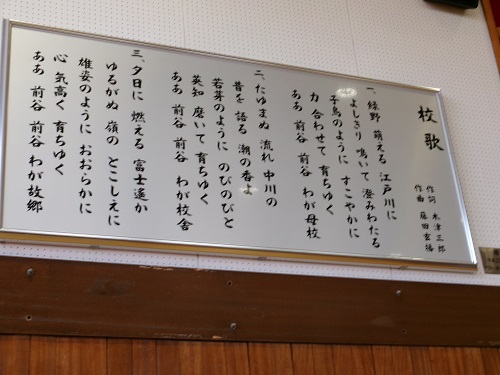 校歌
作詞 木津三郎
作曲 藤田玄播
一、緑野 萌える 江戸川に
よしきり 鳴いて 澄みわたる
子鳥のように すこやかに
力 合わせて 育ちゆく
ああ 前谷 前谷 わが母校
二、たゆまぬ 流れ 中川の
昔を 語る 潮の香よ
若芽のように のびのびと
英知 磨いて 育ちゆく
ああ 前谷 前谷 わが校舎
三、夕日に 燃える 富士遥か
ゆるがぬ 嶺の とこしえに
雄姿のように おおらかに
心 気高く 育ちゆく
ああ 前谷 前谷 わが故郷